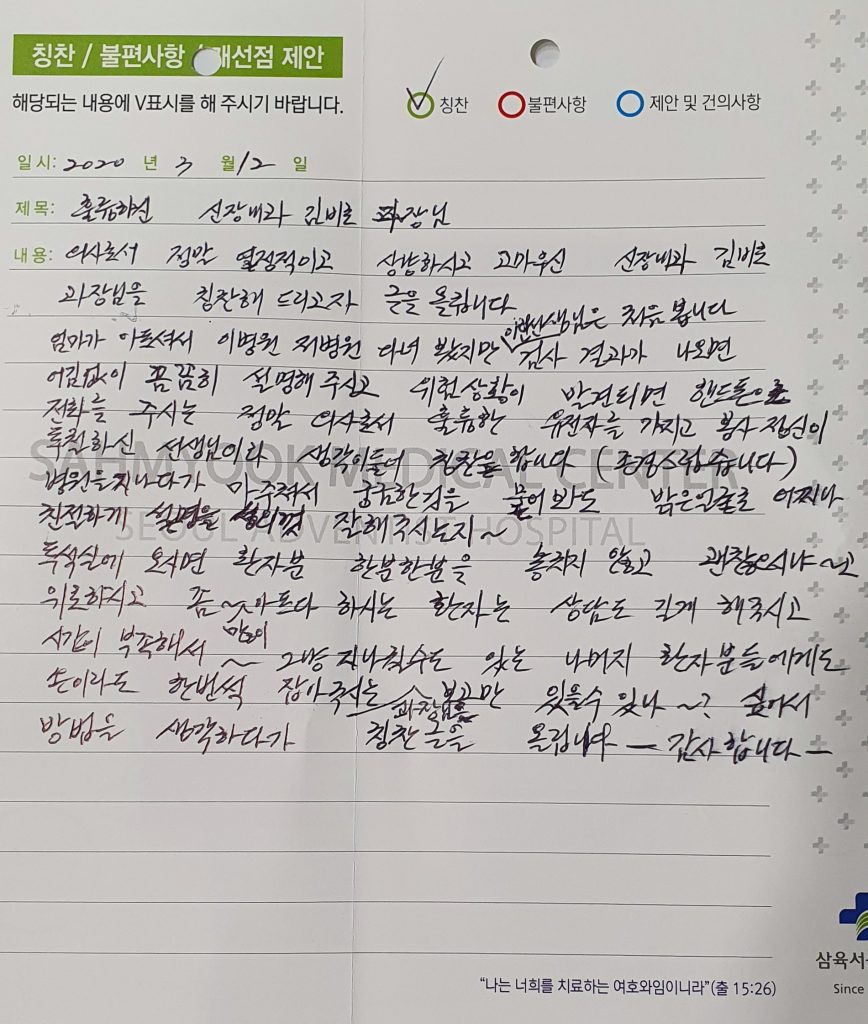 칭찬 / 불편사항 / 개선점 제안
해당되는 내용에 V표시를 해 주시기 바랍니다.
칭찬 불편사항 제안 및 건의사항
일시: 2020 년 3 월 12 일
제목: 훌륭하신 신장내과 김비로 과장님
내용: 의사로서 정말 열정적이고 상냥하시고 고마우신 신장내과 김비로
과장님을 칭찬해 드리고자 글을 올립니다
엄마가 아프셔서 이병원 저병원 다녀 봤지만 이런선생님은 처음 봅니다
검사 결과가 나오면
어김없이 꼼꼼히 설명해 주시고 위험상황이 발견되면 핸드폰으로
전화를 주시는 정말 의사로서 훌륭한 유전자를 가지고 봉사정신이
투철하신 선생님이라 생각이들어 칭찬을 합니다 (존경스럽습니다)
SAHMYOOK MEDICAL CENTER
병원을지나다가 마주쳐서 궁금한것을 물어봐도 밝은얼굴로 어찌나
친절하게 설명을 성의껏 잘해주시는지~
SEOUL ADVENTIST HOSPITAL
투석실에 오시면 환자분 한분한분을 놓치지 않고 괜찮으시냐~고
위로하시고 좀~ 아프다 하시는 환자는 상담도 길게 해주시고
시간이 부족해서 ~ 그냥 지나칠수도 있는 나머지 환자분들에게도
손이라도 한번씩 잡아주시는 과장님을 보고만 있을수 있나~? 싶어서
방법을 생각하다가 칭찬글을 올립니다 — 감사합니다 —
"나는 너희를 치료하는 여호와임이니라"(출 15:26)
삼육서
Since